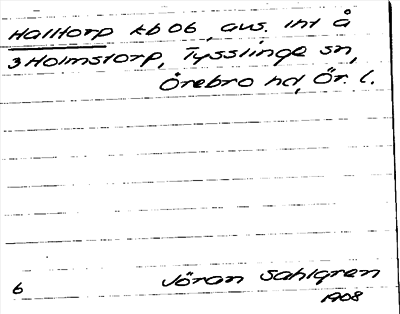 Halltorp kb 06, avs. int å
3 Holmstorp, Tysslinge sn,
Örebro hd, Ör. l.
6 Jöran Sahlgren
1908